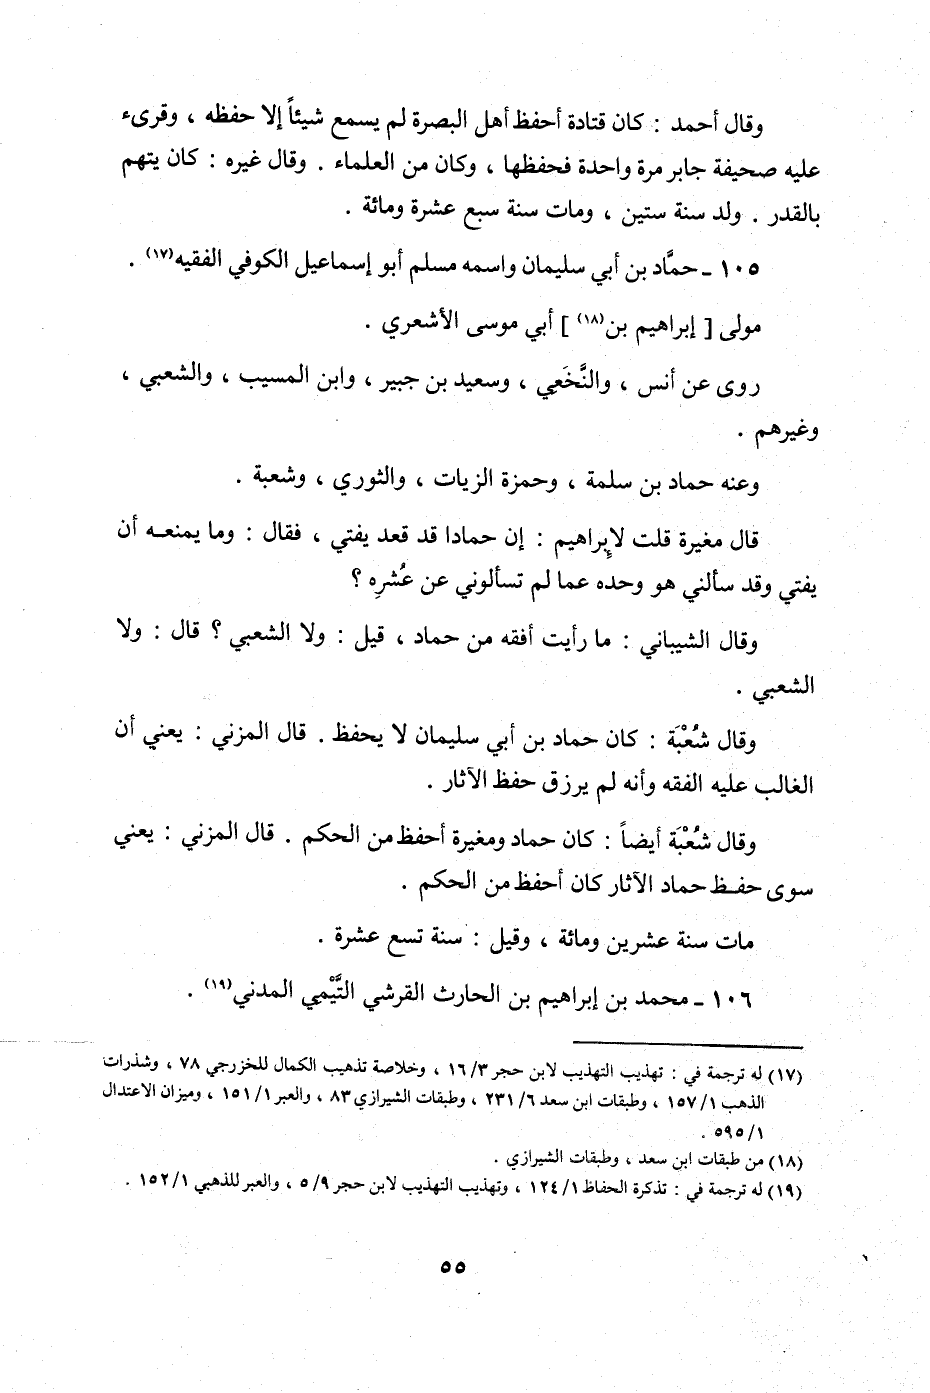 وقال أحمد : كان قتادة أحفظ أهل البصرة لم يسمع شيئاً إلا حفظه ، وقرىء
عليه صحيفة جابر مرة واحدة فحفظها ، وكان من العلماء . وقال غيره : كان يتهم
بالقدر . ولد سنة ستين ، ومات سنة سبع عشرة ومائة .
١٠٥ ـ حمَّاد بن أبي سليمان واسمه مسلم أبو إسماعيل الكوفي الفقيه(١٧) .
مولى [ إبراهيم بن(١٨) ] أبي موسى الأشعري .
روى عن أنس ، والنَّخَعِي ، وسعيد بن جبير ، وابن المسيب ، والشعبي ،
وغيرهم .
وعنه حماد بن سلمة ، وحمزة الزيات ، والثوري ، وشعبة .
قال مغيرة قلت لإِبراهيم : إن حمادا قد قعد يفتي ، فقال : وما يمنعـه أن
يفتي وقد سألني هو وحده عما لم تسألوني عن عُشرِه ؟
وقال الشيباني : ما رأيت أفقه من حماد ، قيل : ولا الشعبي ؟ قال : ولا
الشعبي .
وقال شُعْبَة : كان حماد بن أبي سليمان لا يحفظ . قال المزني : يعني أن
الغالب عليه الفقه وأنه لم يرزق حفظ الآثار .
وقال شُعْبَة أيضاً : كان حماد ومغيرة أحفظ من الحكم . قال المزني : يعني
سوى حفـظ حماد الآثار كان أحفظ من الحكم .
مات سنة عشرين ومائة ، وقيل : سنة تسع عشرة .
١٠٦ ـ محمد بن إبراهيم بن الحارث القرشي التَّيْمي المدني(١٩) .
(١٧) له ترجمة في : تهذيب التهذيب لابن حجر ١٦/٣ ، وخلاصة تذهيب الكمال للخزرجي ٧٨ ، وشذرات
الذهب ١٥٧/١ ، وطبقات ابن سعد ٢٣١/٦ ، وطبقات الشيرازي ٨٣ ، والعبر ١٥١/١ ، وميزان الاعتدال
٥٩٥/١ .
(١٨) من طبقات ابن سعد ، وطبقات الشيرازي .
(١٩) له ترجمة في : تذكرة الحفاظ ١٢٤/١ ، وتهذيب التهذيب لابن حجر ٥/٩ ، والعبر للذهبي ١٥٢/١ .
٥٥